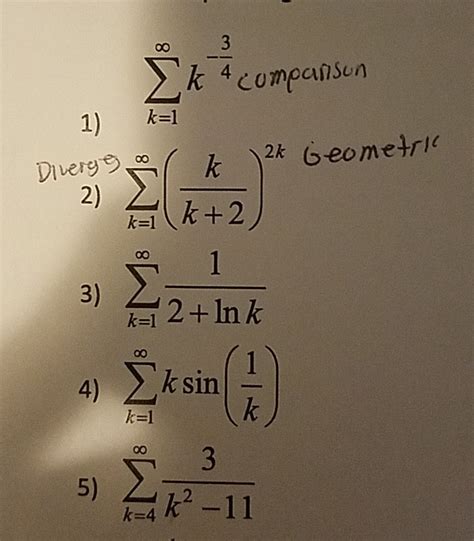 1) ∞ ∑ k=1 k^(-3/4) comparison
Diverges
2) ∞ ∑ k=1 (k/(k+2))^(2k) Geometric
3) ∞ ∑ k=1 1/(2+ln k)
4) ∞ ∑ k=1 k sin(1/k)
5) ∞ ∑ k=4 3/(k²−11)